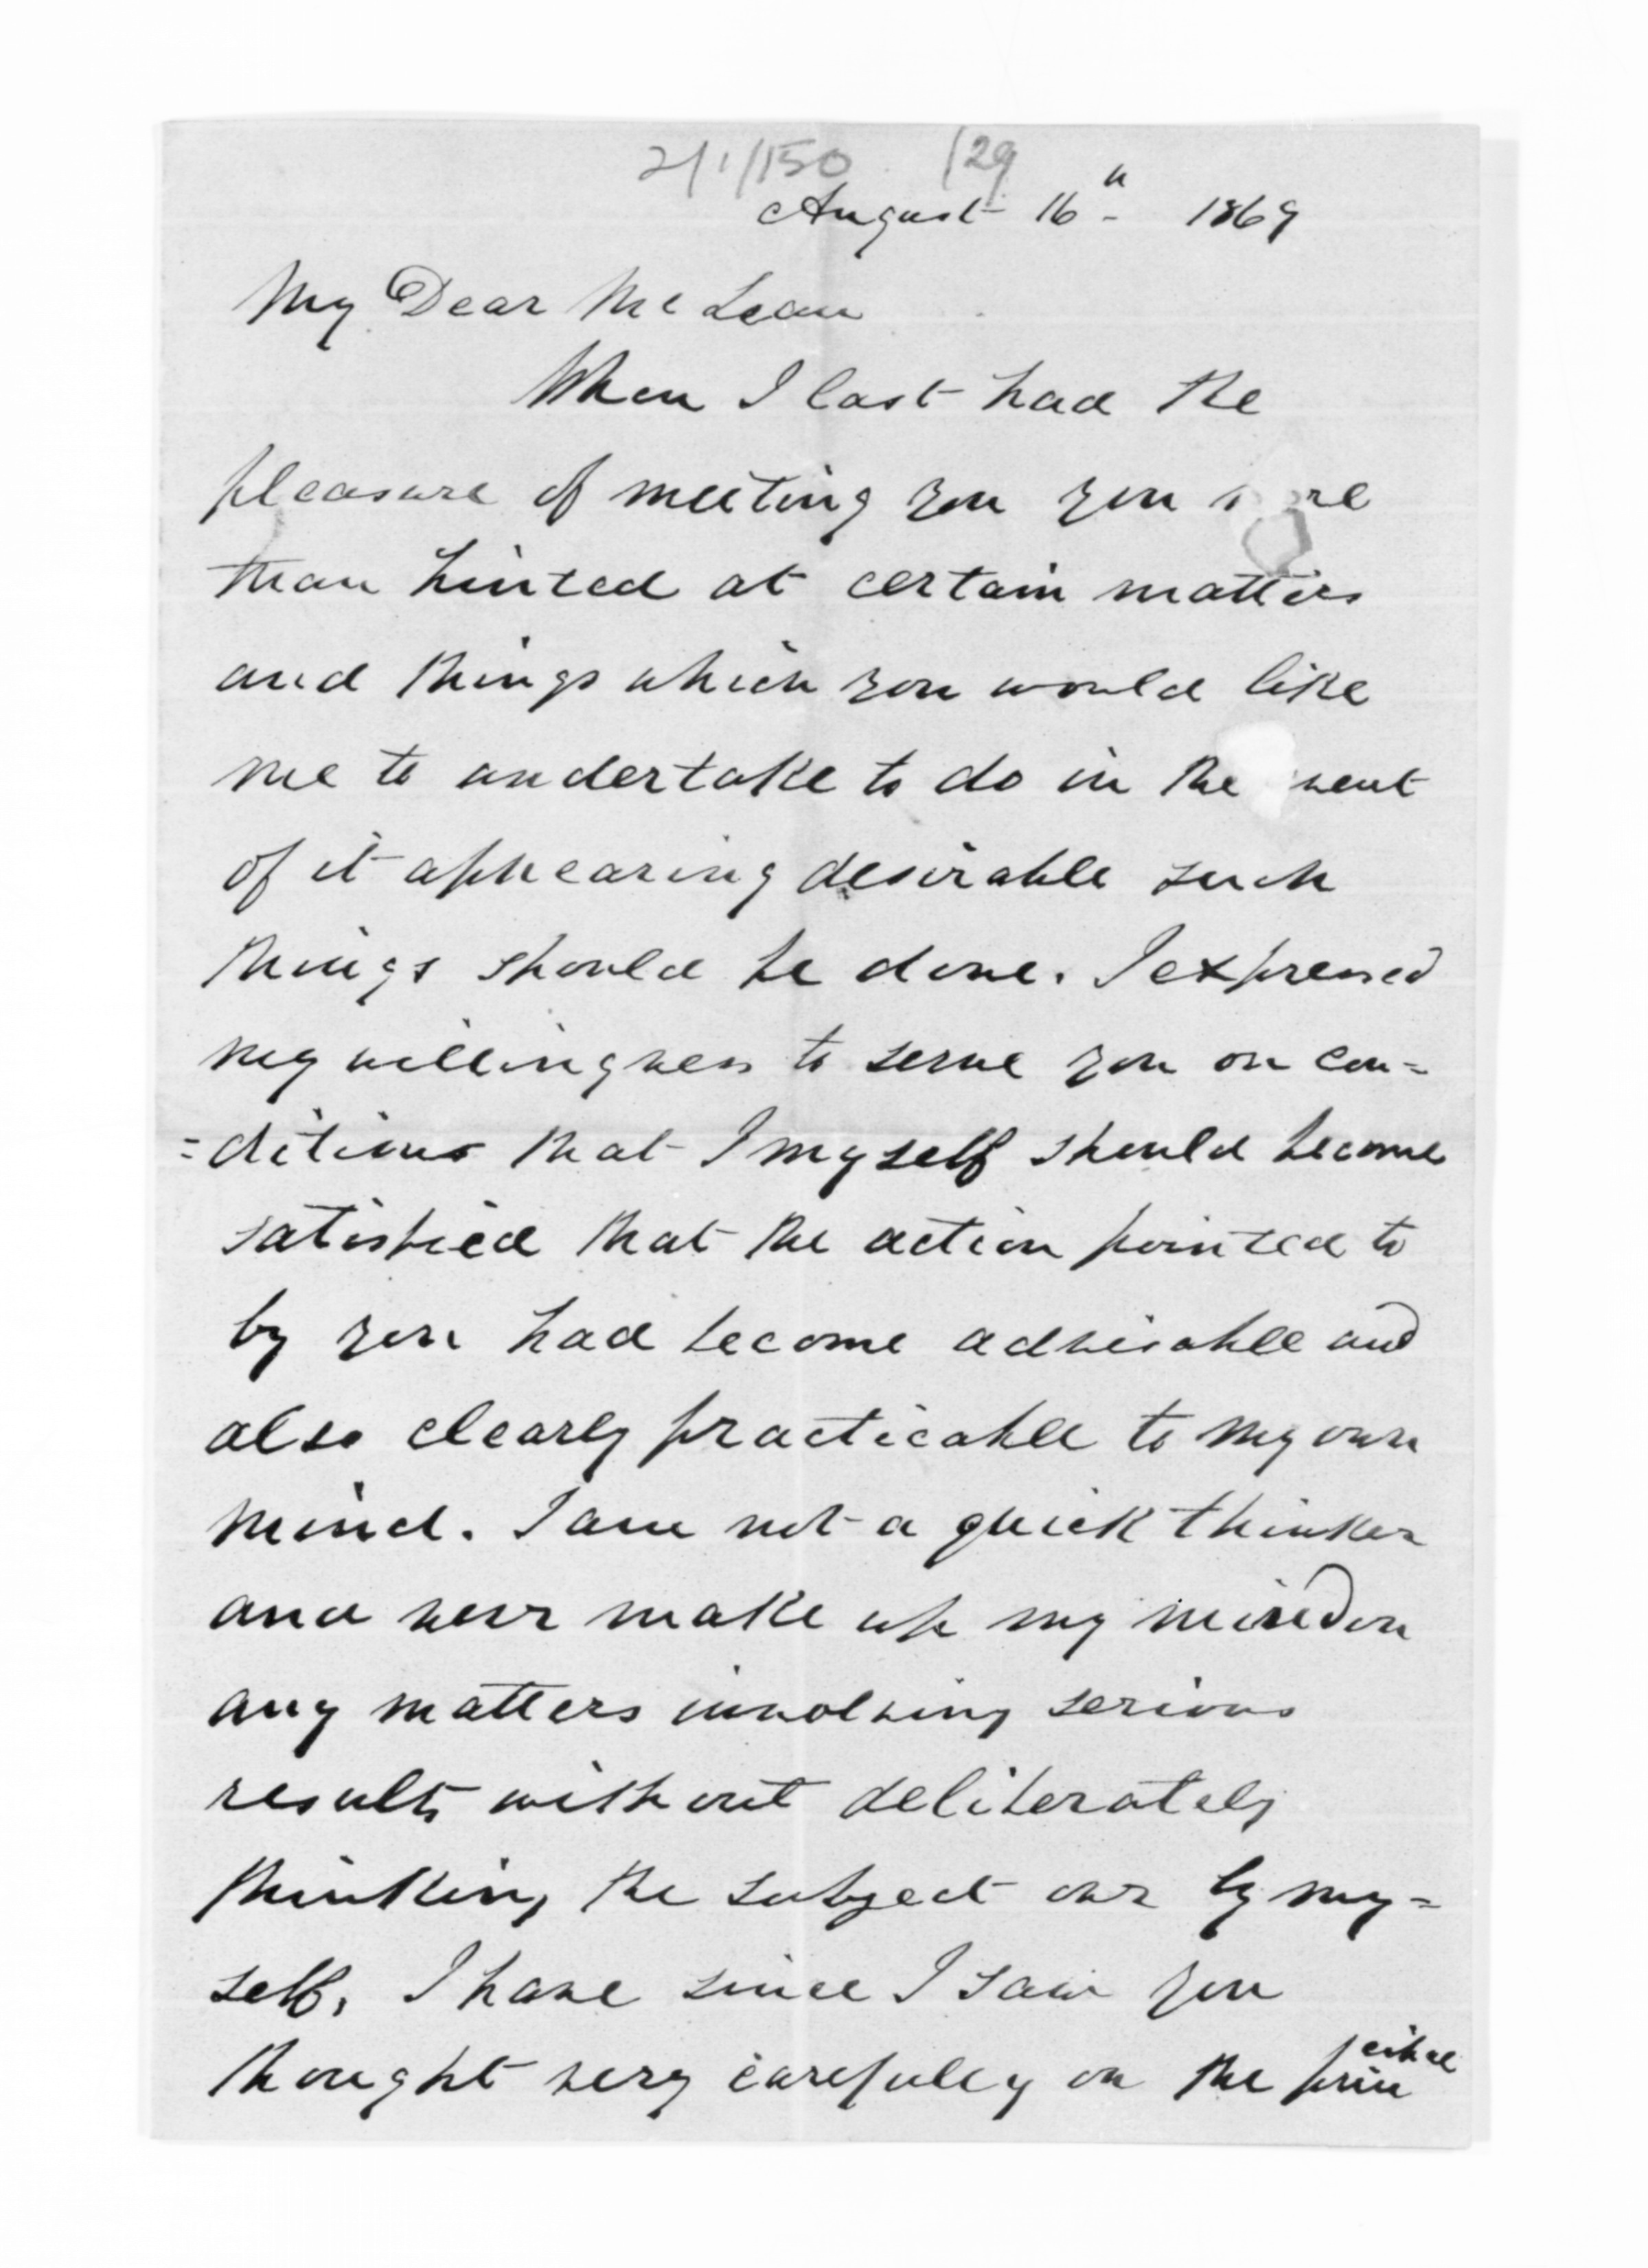 2/1/150 /29
August 16th 1869
My Dear McLean
When I last had the
pleasure of meeting you you more
than hinted at certain matters
and things which you would like
me to undertake to do in the event
of it appearing desirable such
things should be done. I expressed
my willingness to serve you on con=
=ditions that I myself should become
satisfied that the action pointed to
by you had become advisable and
also clearly practicable to my own
mind. I am not a quick thinker
and never make up my mind on
any matters involving serious
results without deliberately
thinking the subject over by my=
self, I have since I saw you
thought very carefully on the principal